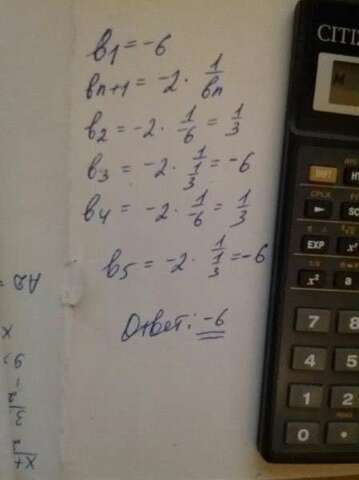 b1 = -6
bn+1 = -2 · 1/bn
b2 = -2 · 1/-6 = 1/3
b3 = -2 · 1/1/3 = -6
b4 = -2 · 1/-6 = 1/3
b5 = -2 · 1/1/3 = -6
Ответ: -6
CITIZ
SHIFT
EXP
x²
a
7
8
4
5
1
2
0
·